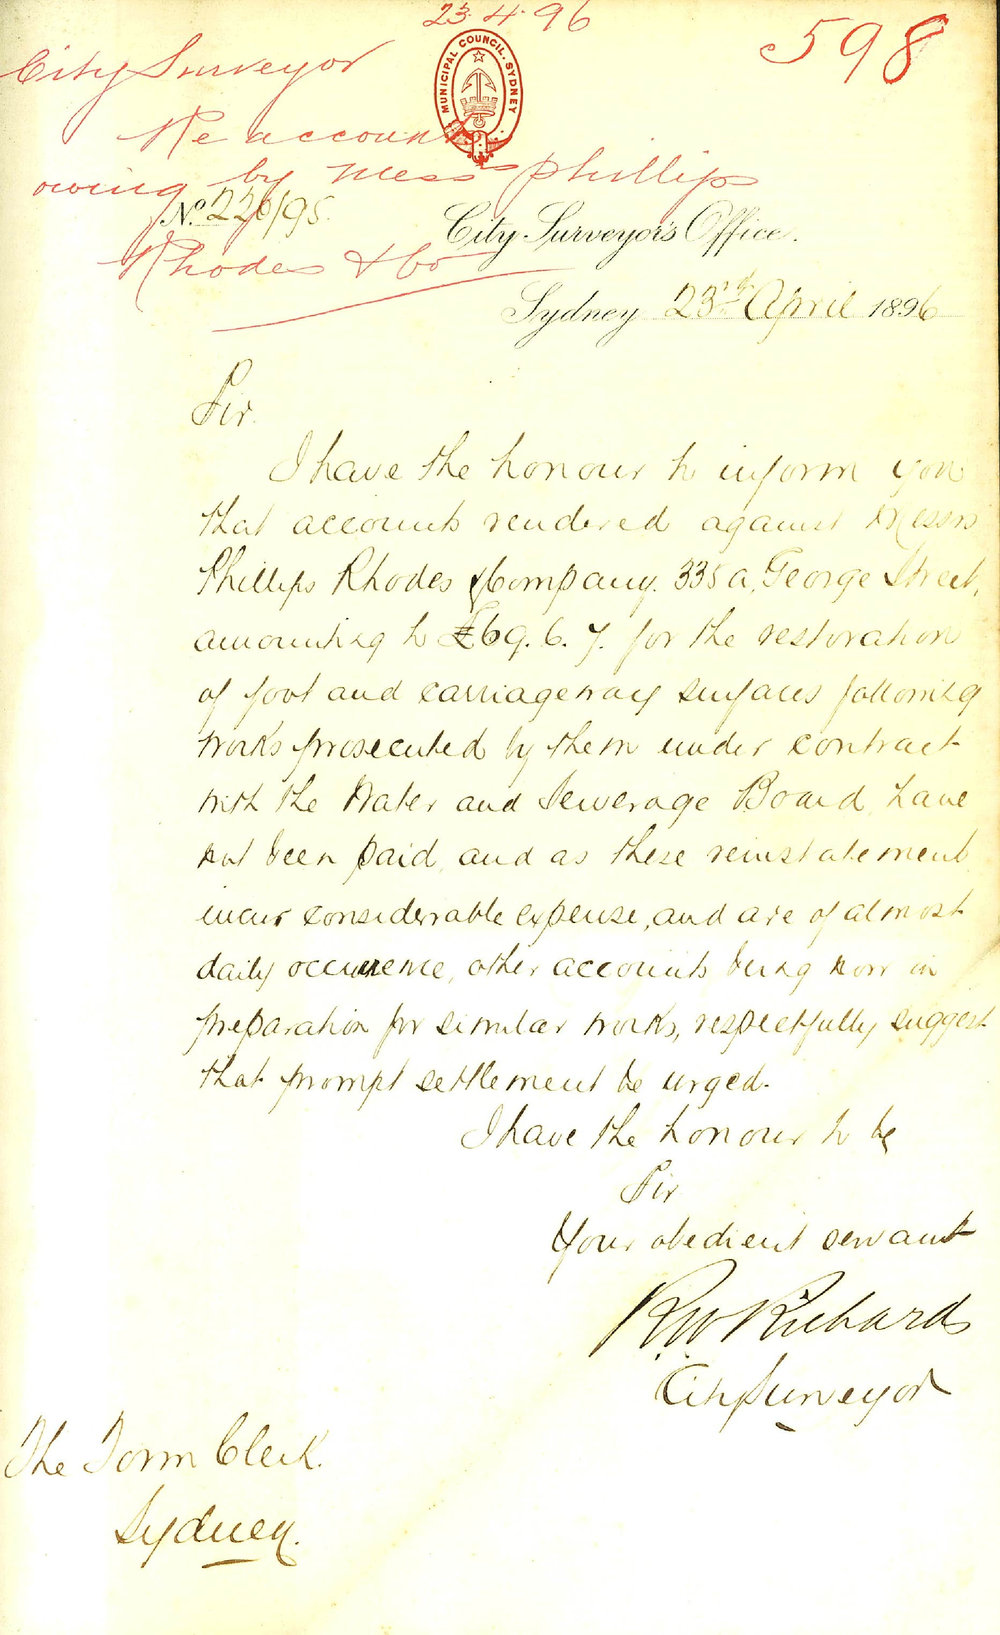 23.4.96
598
City Surveyor
MUNICIPAL COUNCIL. SYDNEY
Re account
owing by Mess<sup>rs</sup> Phillips
Rhodes & Co
No. 226/95.
City Surveyor's Office.
Sydney 23rd April 1896
Sir.
I have the honour to inform you
that accounts rendered against Messrs
Phillips Rhodes & Company. 335a, George Street,
amounting to £69. 6. 7. for the restoration
of foot and carriageway surfaces following
works prosecuted by them under contract
with the Water and Sewerage Board, have
not been paid, and as these reinstatements
incur considerable expense, and are of almost
daily occurrence, other accounts being now in
preparation for similar works, respectfully suggest
that prompt settlement be urged.
I have the honour to be
Sir
Your obedient servant
R.W. Richards
City Surveyor
The Town Clerk.
Sydney.